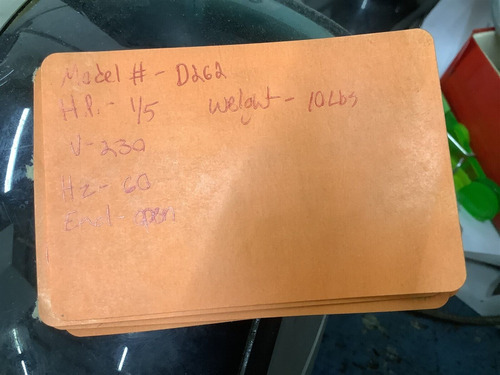 Model # - D262
H.P. - 1/5 Weight - 10 Lbs
V - 230
Hz - 60
Encl -